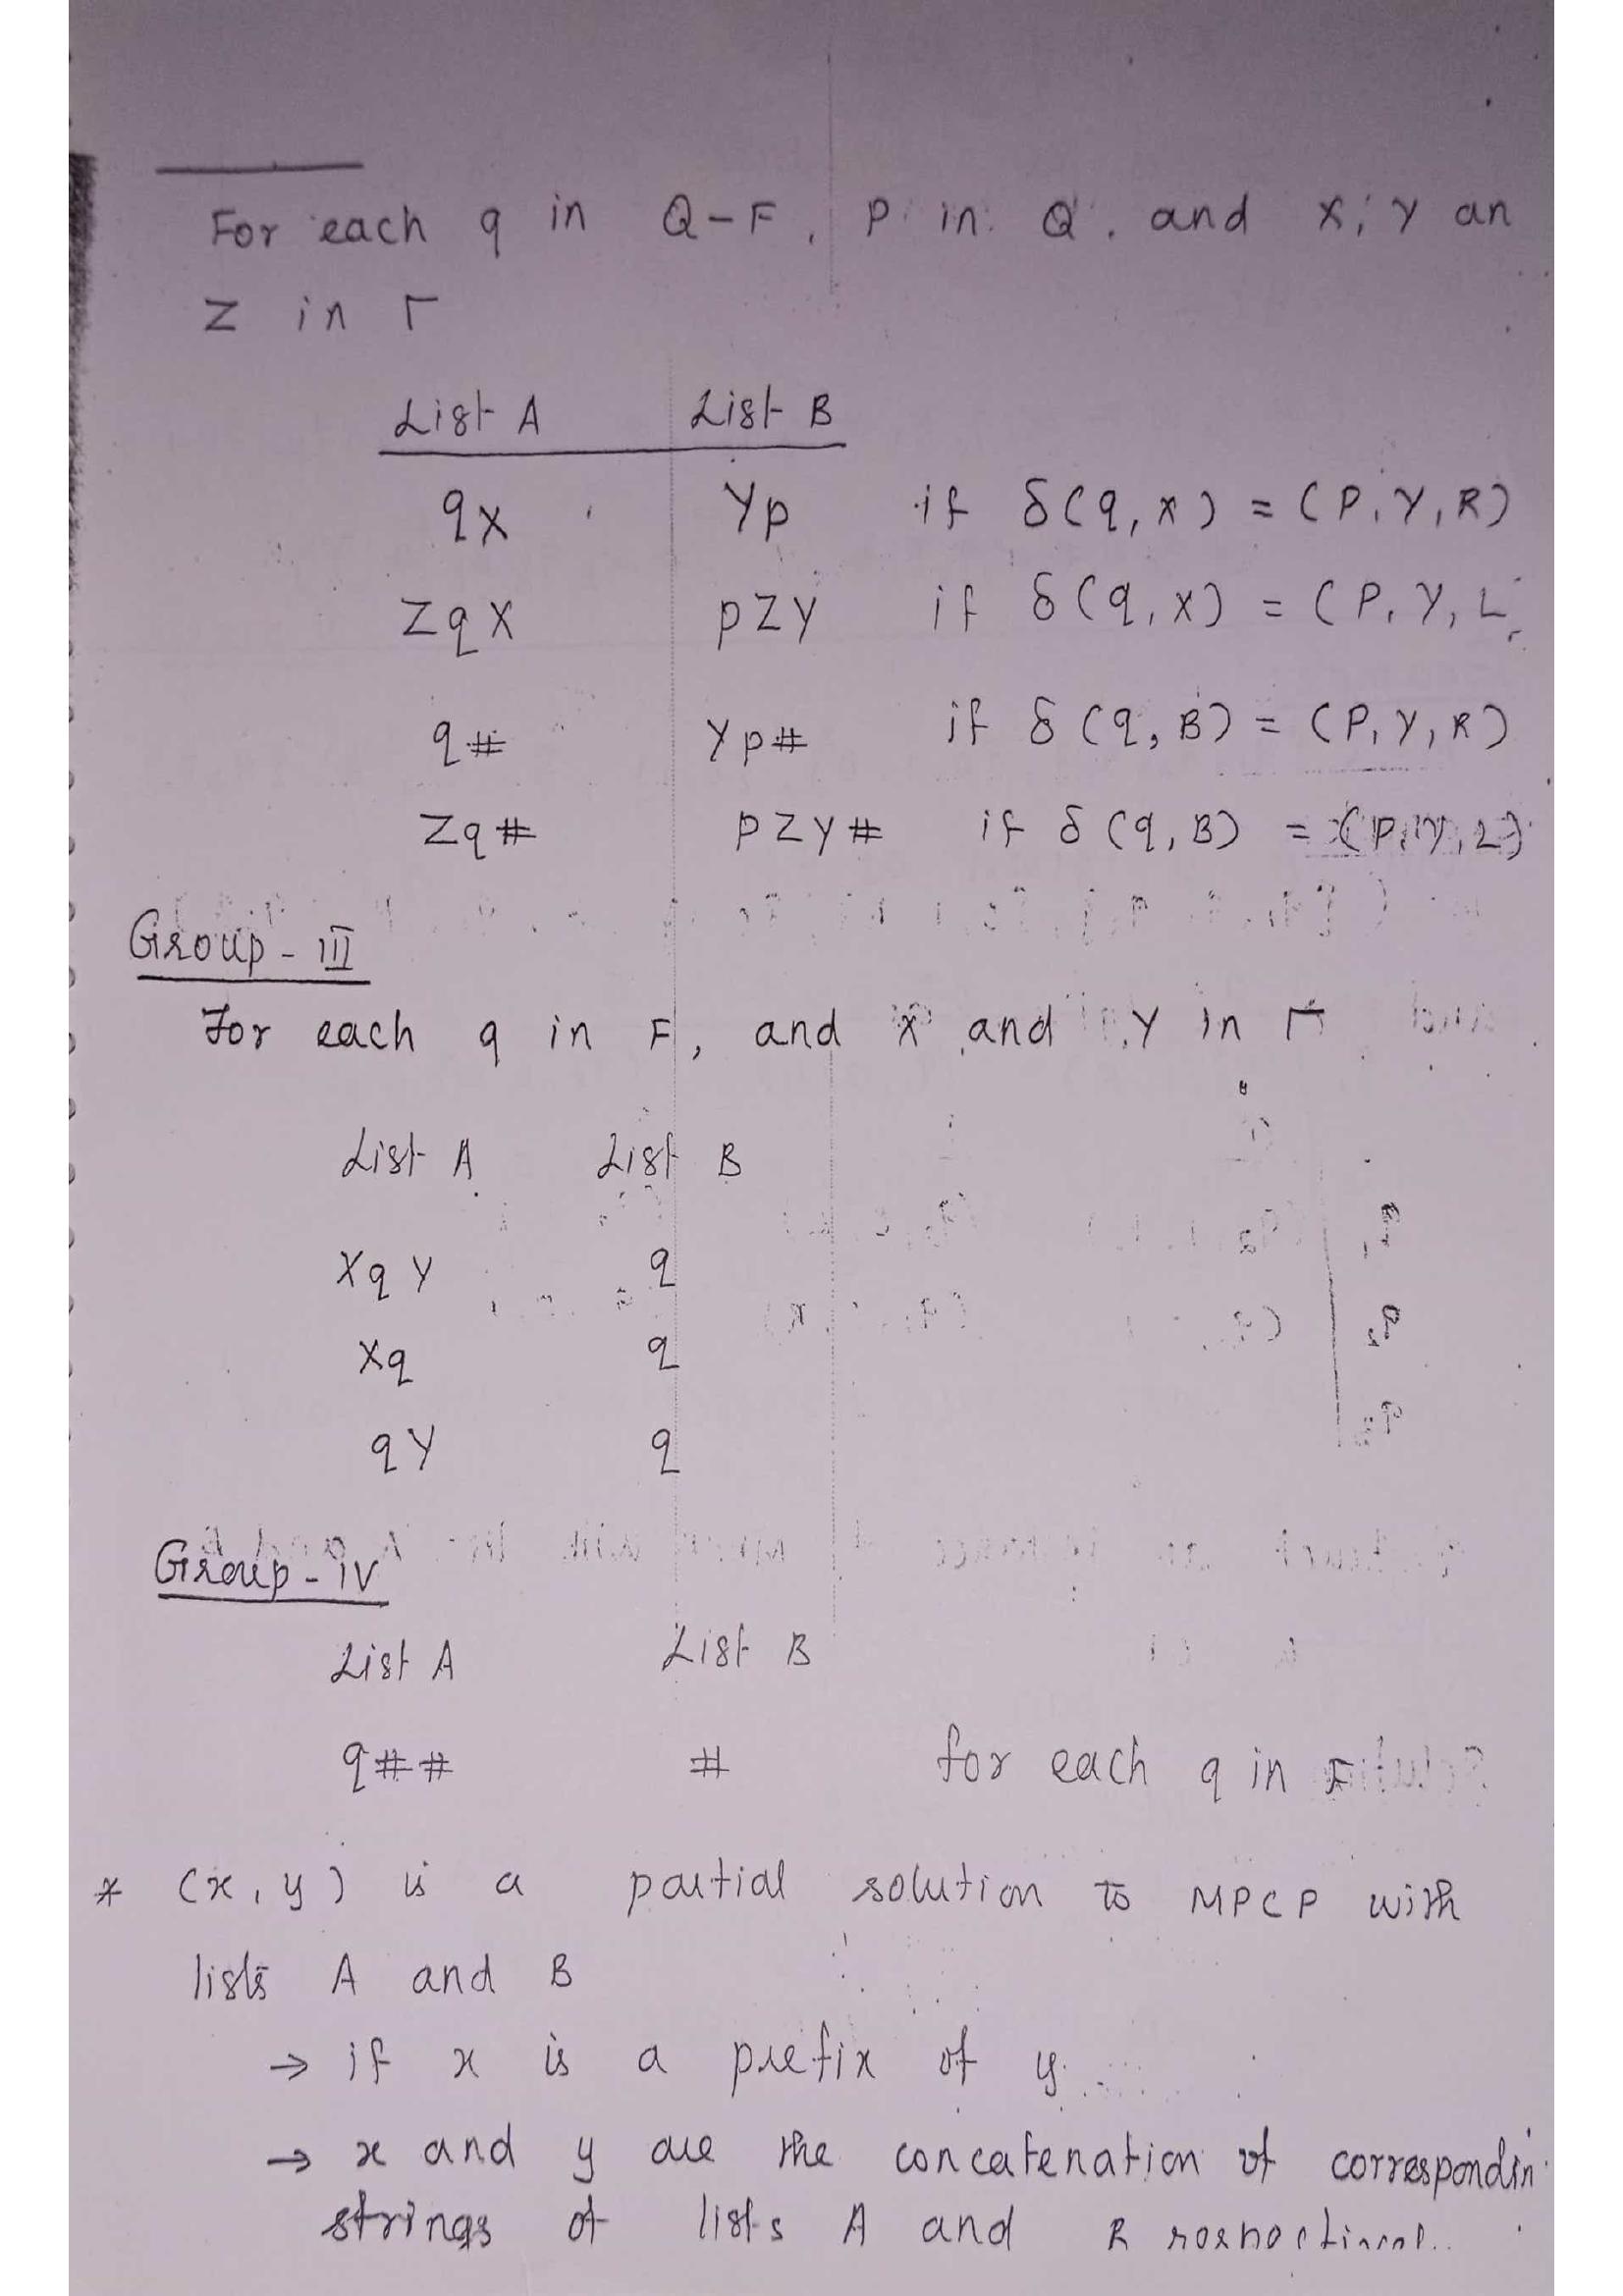 For each q in Q-F, P in Q, and X, Y an
Z in Γ
List A List B
qX Yp if δ(q, x) = (P, Y, R)
ZqX pZY if δ(q, X) = (P, Y, L
q# Yp# if δ(q, B) = (P, Y, R)
Zq# pZY# if δ(q, B) = (P, Y, L)
Group - III
For each q in F, and X and Y in Γ
List A List B
XqY q
Xq q
qY q
Group - IV
List A List B
q## # for each q in F
* (x, y) is a partial solution to MPCP with
lists A and B
→ if x is a prefix of y
→ x and y are the concatenation of correspondin
strings of lists A and